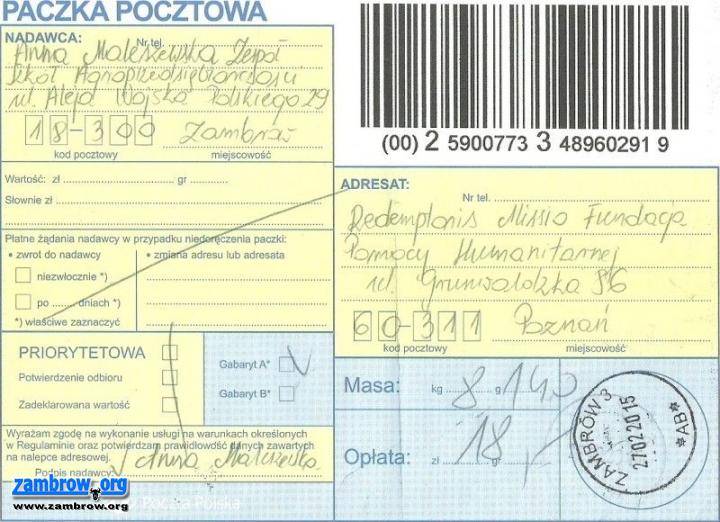 PACZKA POCZTOWA
NADAWCA: Nr tel.
Anna Maleszewska Zespół
Szkół Agroprzedsiębiorczości
ul. Aleja Wojska Polskiego 29
18-300 Zambrów
kod pocztowy miejscowość
Wartość: zł gr
Słownie zł
Płatne żądania nadawcy w przypadku niedoręczenia paczki:
• zwrot do nadawcy • zmiana adresu lub adresata
niezwłocznie *)
po ...... dniach *)
*) właściwe zaznaczyć
PRIORYTETOWA
Potwierdzenie odbioru
Zadeklarowana wartość
Gabaryt A* V
Gabaryt B*
Wyrażam zgodę na wykonanie usługi na warunkach określonych
w Regulaminie oraz potwierdzam prawidłowość danych zawartych
na nalepce adresowej.
Podpis nadawcy: Anna Maleszewska
(00) 2 5900773 3 48960291 9
ADRESAT: Nr tel.
Redemptoris Missio Fundacja
Pomocy Humanitarnej
ul. Grunwaldzka 86
60-311 Poznań
kod pocztowy miejscowość
Masa: kg 8 g 140
Opłata: zł 18 gr
ZAMBRÓW 3
27022015
*AB*
zambrow.org
www.zambrow.org
Poczta Polska